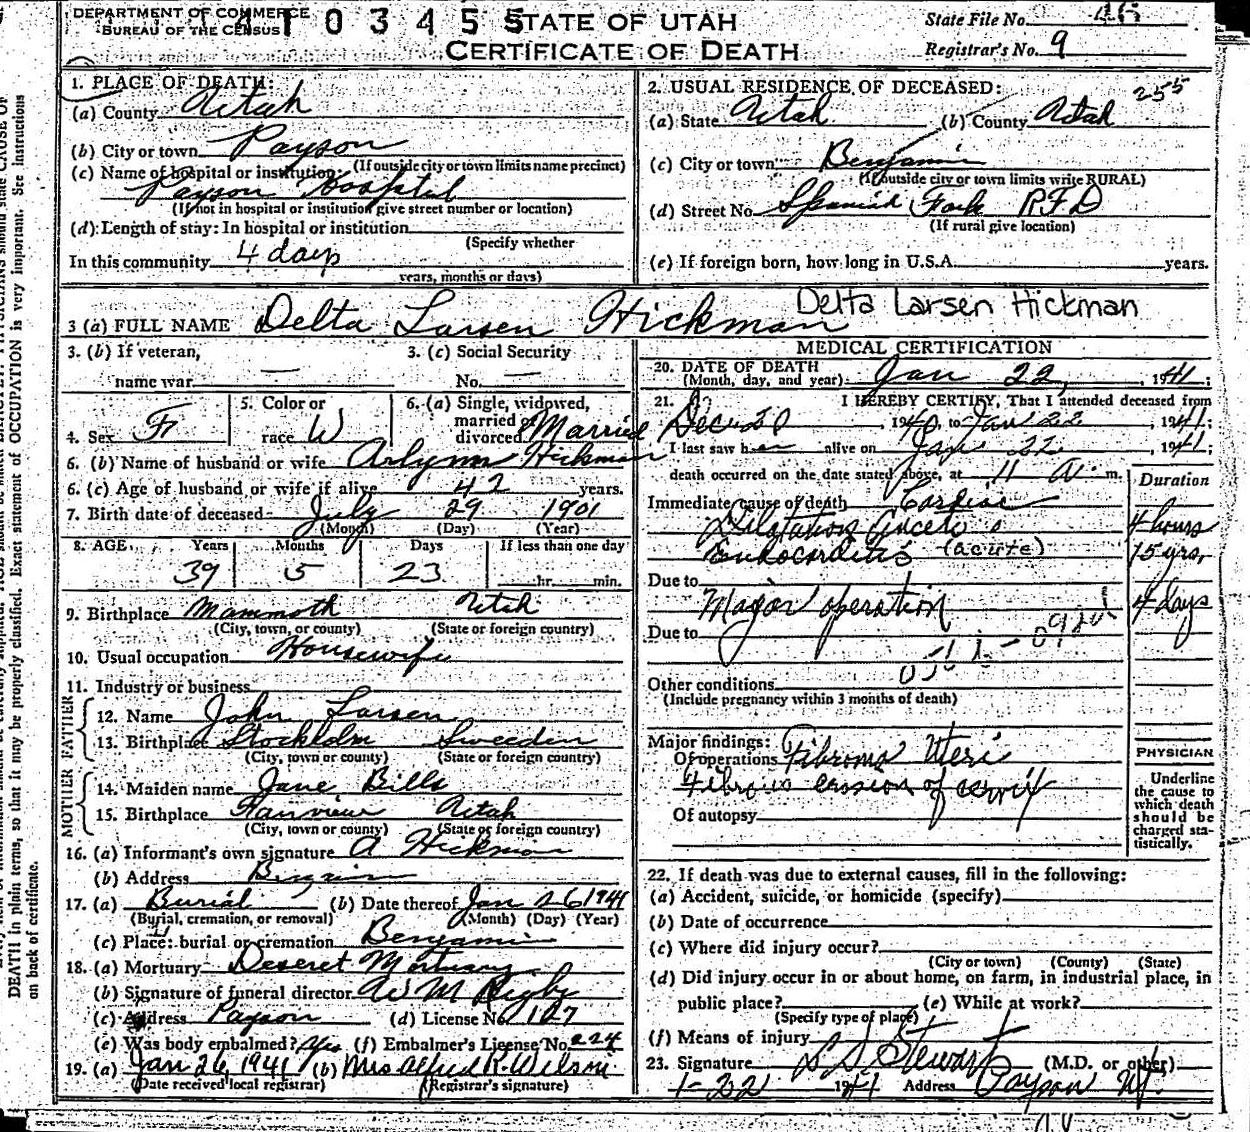 DEPARTMENT OF COMMERCE
BUREAU OF THE CENSUS
1 4 1 0 3 4 5 5
STATE OF UTAH
CERTIFICATE OF DEATH
State File No. 46
Registrar's No. 9
1. PLACE OF DEATH:
(a) County Utah
(b) City or town Payson
(If outside city or town limits name precinct)
(c) Name of hospital or institution:
Payson Hospital
(If not in hospital or institution give street number or location)
(d) Length of stay: In hospital or institution
(Specify whether
In this community 4 days
years, months or days)
2. USUAL RESIDENCE OF DECEASED: 255
(a) State Utah (b) County Utah
(c) City or town Benjamin
(If outside city or town limits write RURAL)
(d) Street No. Spanish Fork RFD
(If rural give location)
(e) If foreign born, how long in U.S.A. years.
3 (a) FULL NAME Delta Larsen Hickman Delta Larsen Hickman
3. (b) If veteran,
name war —
3. (c) Social Security
No. —
4. Sex F
5. Color or
race W
6. (a) Single, widowed,
married
divorced Married
6. (b) Name of husband or wife Arlynn Hickman
6. (c) Age of husband or wife if alive 42 years.
7. Birth date of deceased July 29 1901
(Month) (Day) (Year)
8. AGE Years Months Days If less than one day
39 5 23 hr. min.
9. Birthplace Mammoth Utah
(City, town, or county) (State or foreign country)
10. Usual occupation Housewife
11. Industry or business
FATHER
12. Name John Larsen
13. Birthplace Stockholm Sweeden
(City, town or county) (State or foreign country)
MOTHER
14. Maiden name Jane Bills
15. Birthplace Fairview Utah
(City, town or county) (State or foreign country)
16. (a) Informant's own signature A Hickman
(b) Address
17. (a) Burial (b) Date thereof Jan 26 1941
(Burial, cremation, or removal) (Month) (Day) (Year)
(c) Place: burial or cremation Benjamin
18. (a) Mortuary Deseret Mortuary
(b) Signature of funeral director W M Rigby
(c) Address Payson (d) License No. 127
(e) Was body embalmed? Yes (f) Embalmer's License No. 224
19. (a) Jan 26, 1941 (b) Mrs Alfred R. Wilson
(Date received local registrar) (Registrar's signature)
MEDICAL CERTIFICATION
20. DATE OF DEATH
(Month, day, and year) Jan 22, 1941;
21. I HEREBY CERTIFY, That I attended deceased from
Dec 30, 1940, to Jan 22, 1941;
I last saw her alive on Jan 22, 1941;
death occurred on the date stated above, at 11 A. m.
Duration
Immediate cause of death Cardiac
Dilatation Acute 4 hours
Endocarditis (acute) 15 yrs.
Due to
Major operation 4 days
Due to
Other conditions
(Include pregnancy within 3 months of death)
Major findings:
Of operations Fibroma Uteri
Fibrous erosion of cervix
Of autopsy
PHYSICIAN
Underline
the cause to
which death
should be
charged sta-
tistically.
22. If death was due to external causes, fill in the following:
(a) Accident, suicide, or homicide (specify)
(b) Date of occurrence
(c) Where did injury occur?
(City or town) (County) (State)
(d) Did injury occur in or about home, on farm, in industrial place, in
public place? (e) While at work?
(Specify type of place)
(f) Means of injury
23. Signature L D Stewart (M.D. or other)
1-22 1941 Address Payson Ut.
DEATH in plain terms, so that it may be properly classified. Exact statement of OCCUPATION is very important. See instructions
on back of certificate.